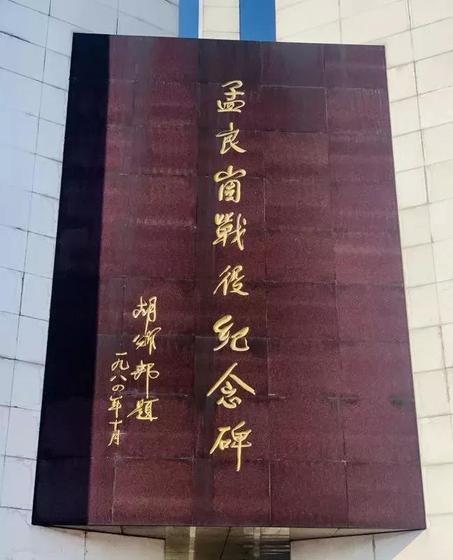 孟良崮戰役纪念碑
胡耀邦題
一九八四年十月